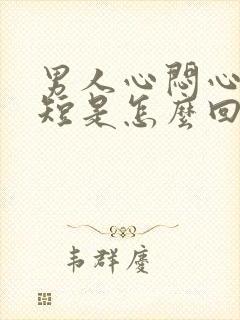 男人心悶心
短是怎麼回
韦群慶